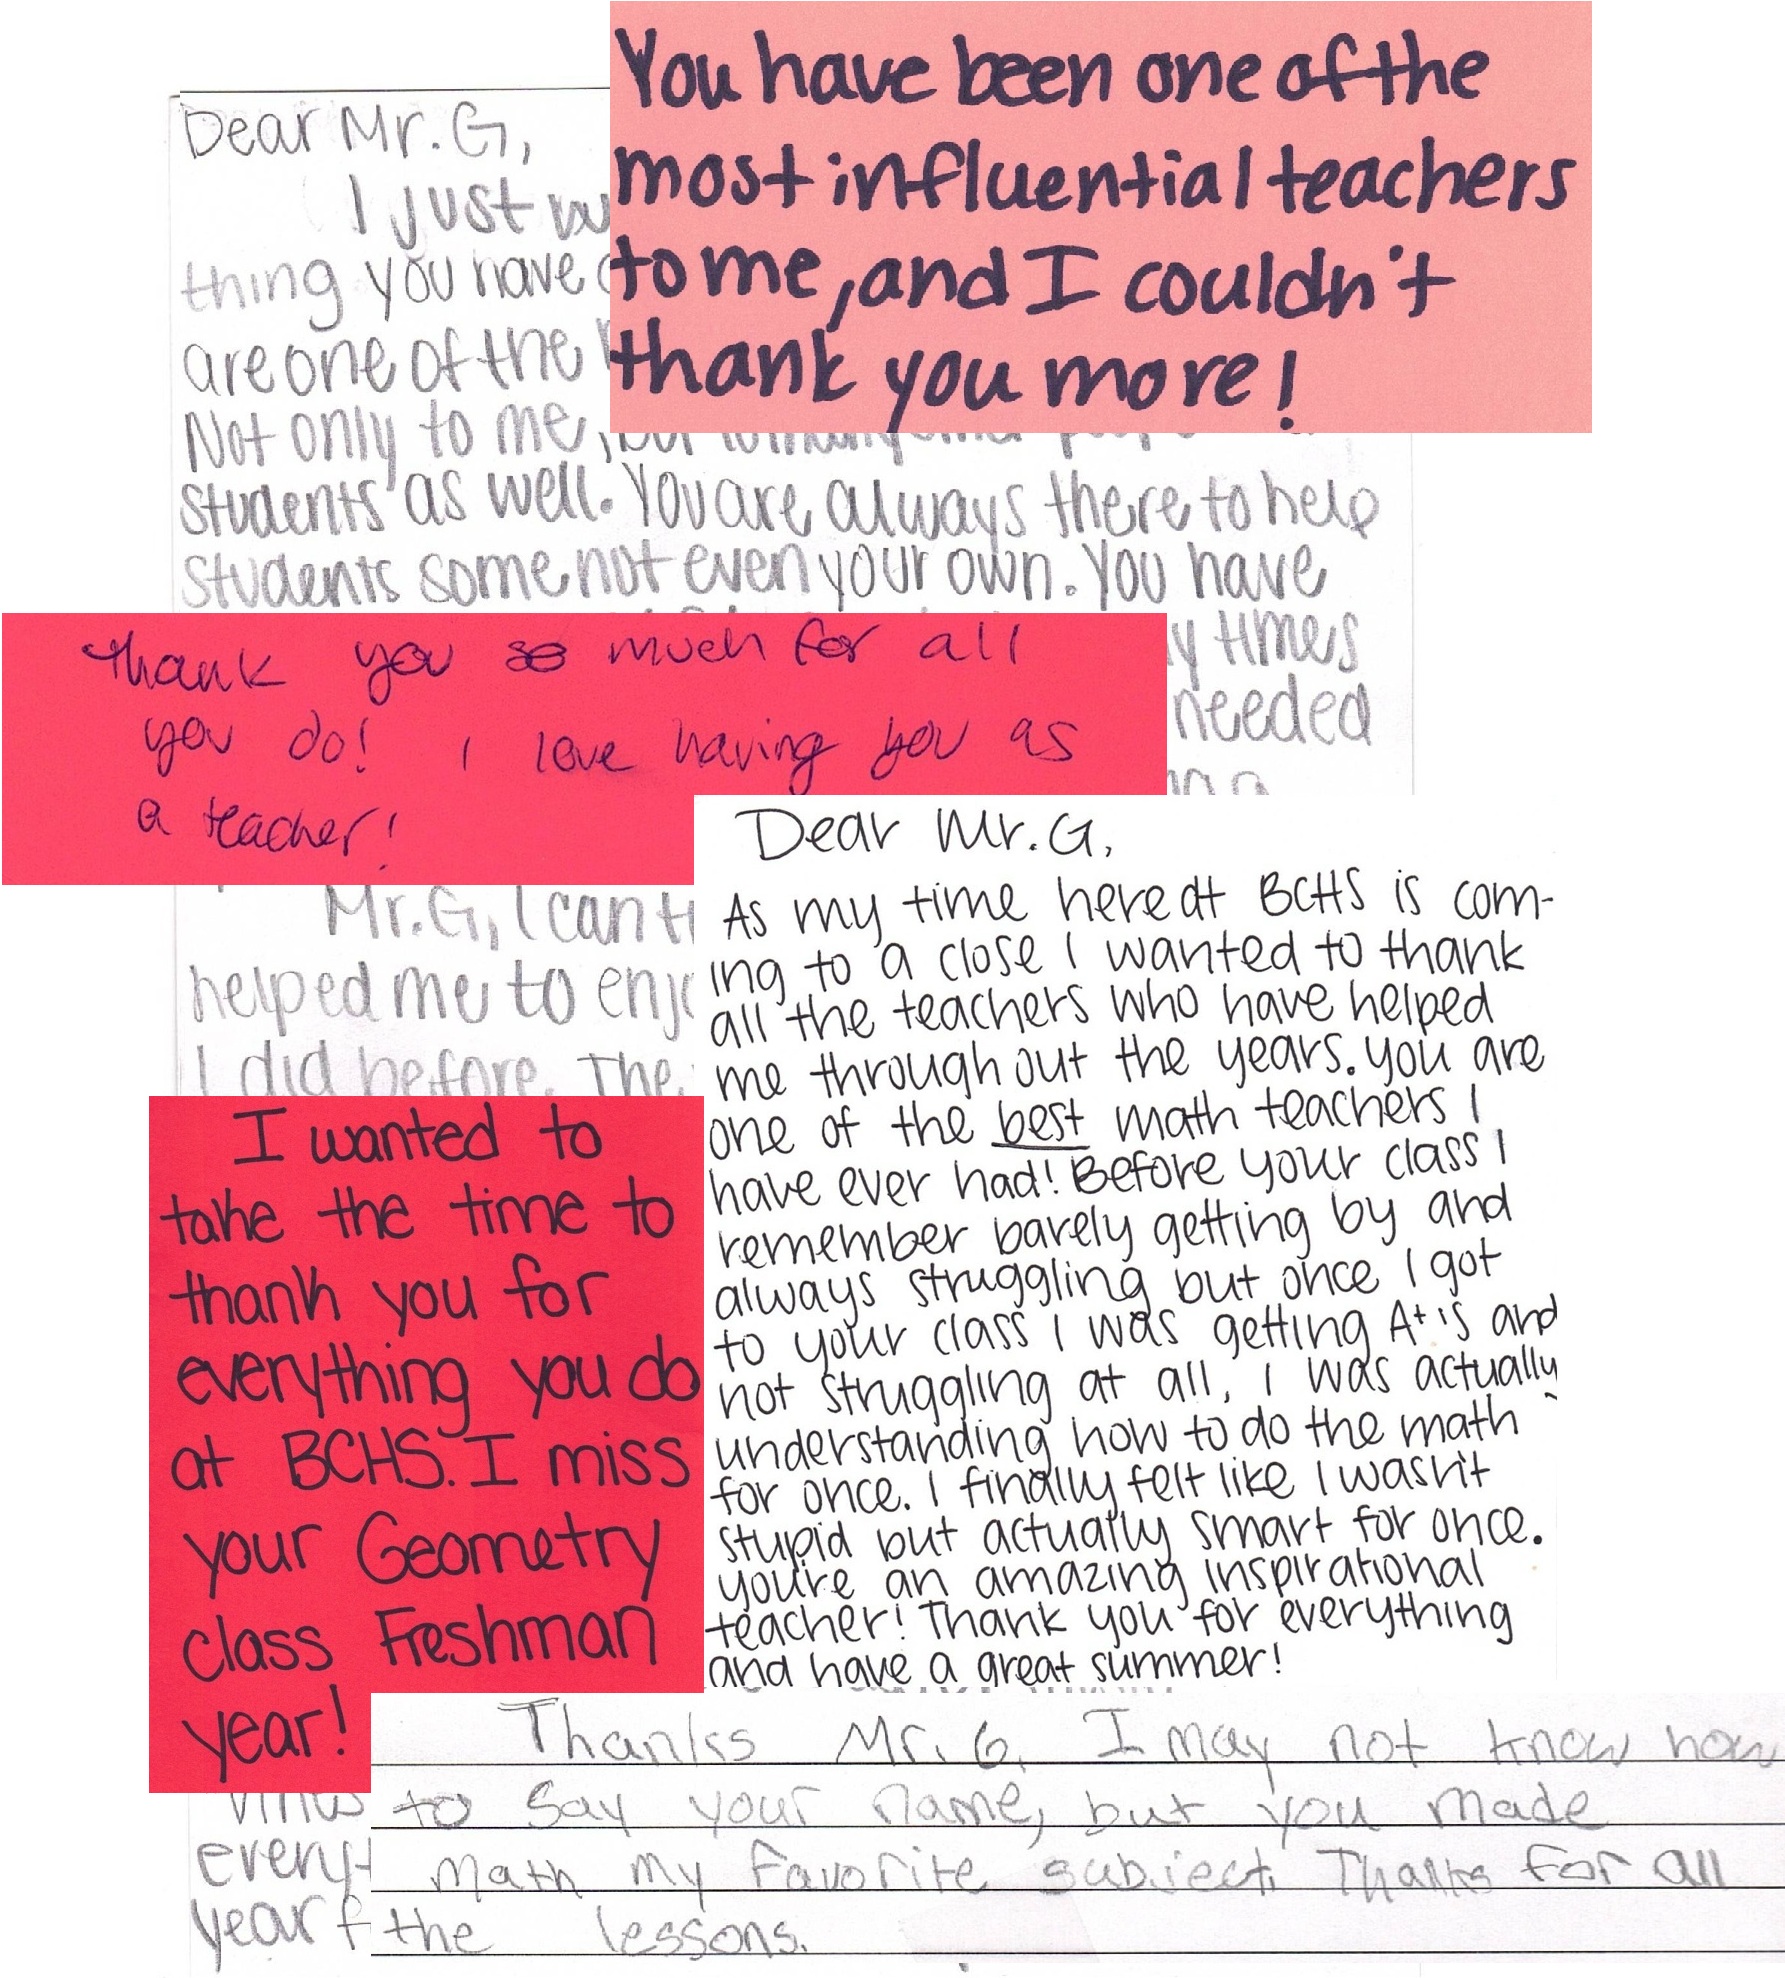 You have been one of the
most influential teachers
to me, and I couldn't
thank you more!
Dear Mr. G,
I just
thing you have
are one of the
Not only to me,
students as well. You are always there to help
students some not even your own. You have
times
needed
thank you so much for all
you do! I love having you as
a teacher!
Mr. G, I can
helped me to
I did before. The
Dear Mr. G,
As my time here at BCHS is com-
ing to a close I wanted to thank
all the teachers who have helped
me through out the years. You are
one of the best math teachers I
have ever had! Before your class I
remember barely getting by and
always struggling but once I got
to your class I was getting A+'s and
not struggling at all. I was actually
understanding how to do the math
for once. I finally felt like I wasn't
stupid but actually smart for once.
you're an amazing inspirational
teacher! Thank you for everything
and have a great summer!
I wanted to
take the time to
thank you for
everything you do
at BCHS. I miss
your Geometry
class Freshman
year!
every
year
Thanks Mr. G. I may not know how
to say your name, but you made
math my favorite subject. Thanks for all
the lessons.